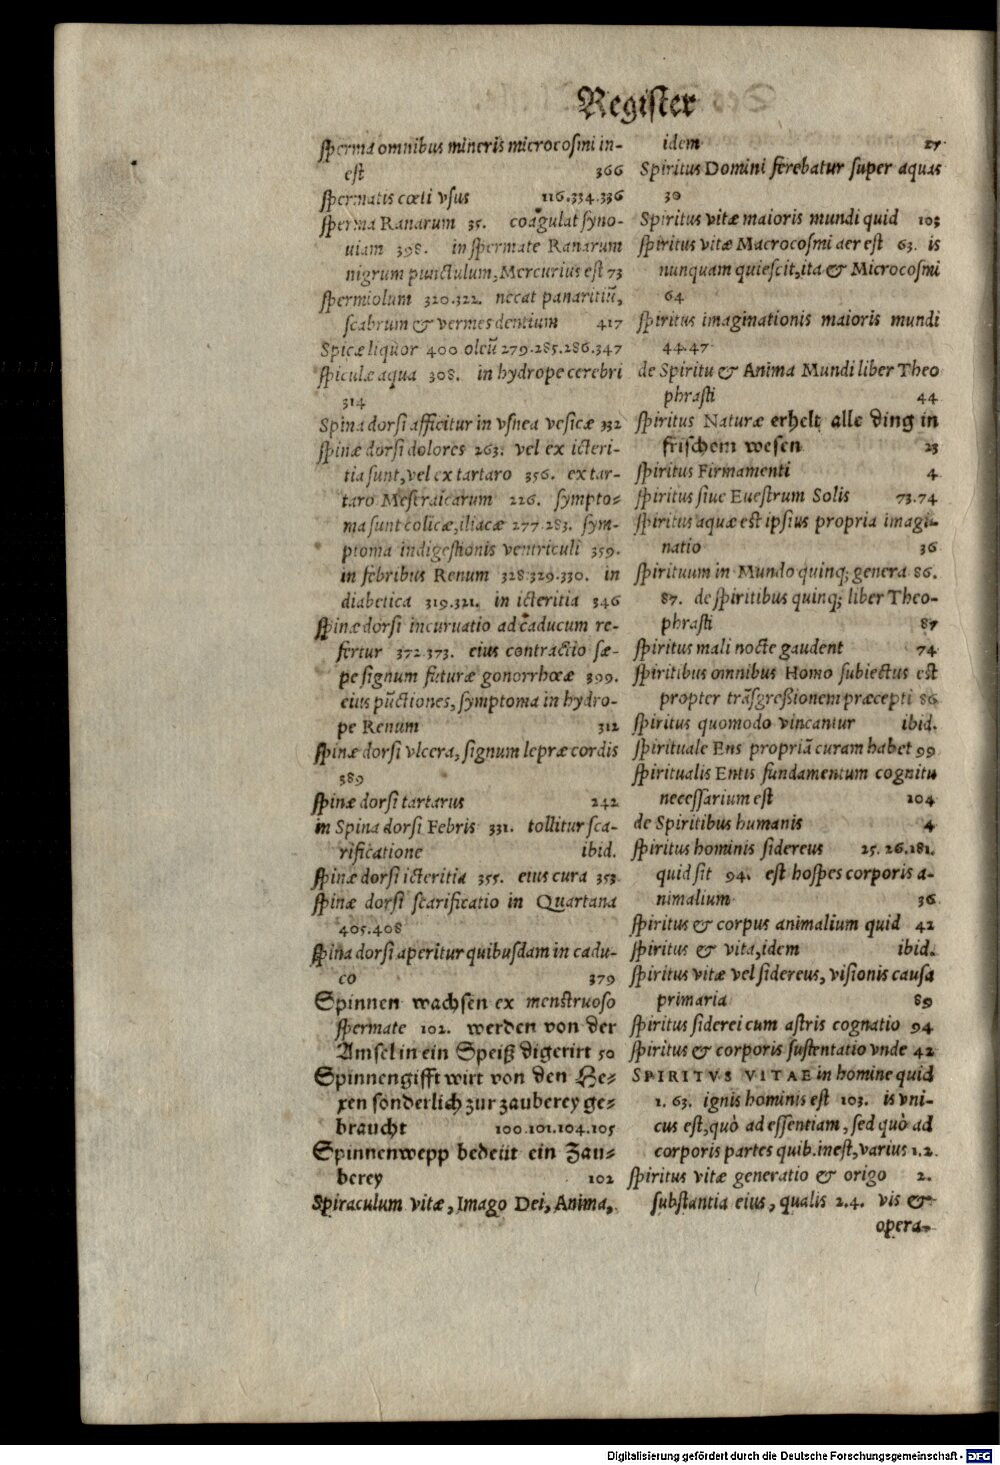 Register
ſperma omnibus mineris microcoſmi in-
eſt 366
ſpermatis cœli vſus 116.334.336
ſperma Ranarum 35. coagulat ſyno-
uiam 398. in ſpermate Ranarum
nigrum punctulum, Mercurius eſt 73
ſpermiolum 320.322. necat panaritiū,
ſcabrum & vermes dentium 417
Spicæ liquor 400 oleū 279.285.286.347
ſpiculæ aqua 308. in hydrope cerebri
314
Spina dorſi afficitur in vſnea veſicæ 332
ſpinæ dorſi dolores 263. vel ex icteri-
tia ſunt, vel ex tartaro 356. ex tar-
taro Meſtraicarum 226. ſympto-
ma ſunt colicæ, iliacæ 277.283. ſym-
ptoma indigeſtionis ventriculi 359.
in febribus Renum 328.329.330. in
diabetica 319.321. in icteritia 346
ſpinæ dorſi incuruatio ad caducum re-
fertur 372.373. eius contractio ſæ-
pe ſignum futuræ gonorrhœæ 399.
eius pūctiones, ſymptoma in hydro-
pe Renum 312
ſpinæ dorſi vlcera, ſignum lepræ cordis
389
ſpinæ dorſi tartarus 242
in Spina dorſi Febris 331. tollitur ſca-
rificatione ibid.
ſpinæ dorſi icteritia 355. eius cura 353
ſpinæ dorſi ſcarificatio in Quartana
405.408
ſpina dorſi aperitur quibuſdam in cadu-
co 379
Spinnen wachſen ex menſtruoſo
ſpermate 102. werden von der
Amſel in ein Speiß digerirt 50
Spinnengifft wirt von den He-
xen ſonderlich zur zauberey ge-
braucht 100.101.104.105
Spinnenwepp bedeüt ein Zau-
berey 102
Spiraculum vitæ, Imago Dei, Anima,
idem 27
Spiritus Domini ferebatur ſuper aquas
30
Spiritus vitæ maioris mundi quid 103
ſpiritus vitæ Macrocoſmi aer eſt 63. is
nunquam quieſcit, ita & Microcoſmi
64
ſpiritus imaginationis maioris mundi
44.47
de Spiritu & Anima Mundi liber Theo
phraſti 44
ſpiritus Naturæ erhelt alle ding in
friſchem weſen 23
ſpiritus Firmamenti 4
ſpiritus ſiue Eueſtrum Solis 73.74
ſpiritus aquæ eſt ipſius propria imagi-
natio 36
ſpirituum in Mundo quinq; genera 86.
87. de ſpiritibus quinq; liber Theo-
phraſti 87
ſpiritus mali nocte gaudent 74
ſpiritibus omnibus Homo ſubiectus eſt
propter trāſgreßionem præcepti 86
ſpiritus quomodo vincantur ibid.
ſpirituale Ens propriā curam habet 99
ſpiritualis Entis fundamentum cognitu
neceſſarium eſt 104
de Spiritibus humanis 4
ſpiritus hominis ſidereus 25.26.181.
quid ſit 94. eſt hoſpes corporis a-
nimalium 36
ſpiritus & corpus animalium quid 42
ſpiritus & vita, idem ibid.
ſpiritus vitæ vel ſidereus, viſionis cauſa
primaria 89
ſpiritus ſiderei cum aſtris cognatio 94
ſpiritus & corporis ſuſtentatio vnde 42
SPIRITVS VITAE in homine quid
1. 63. ignis hominis eſt 103. is vni-
cus eſt, quò ad eſſentiam, ſed quò ad
corporis partes quib. ineſt, varius 1.2.
ſpiritus vitæ generatio & origo 2.
ſubſtantia eius, qualis 2.4. vis &
opera-
Digitalisierung gefördert durch die Deutsche Forschungsgemeinschaft - DFG